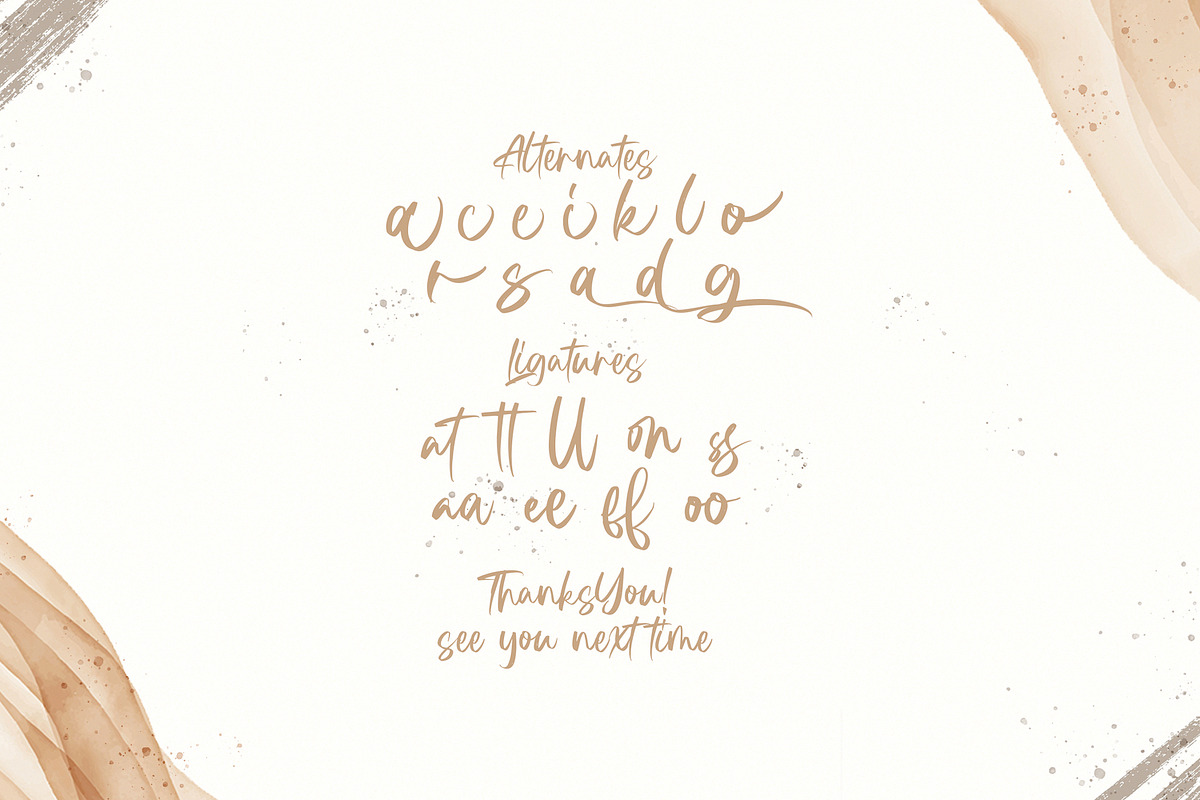 Alternates
a c e i k l o
r s a d g
Ligatures
at tt ll on ss
aa ee ff oo
ThanksYou!
see you next time